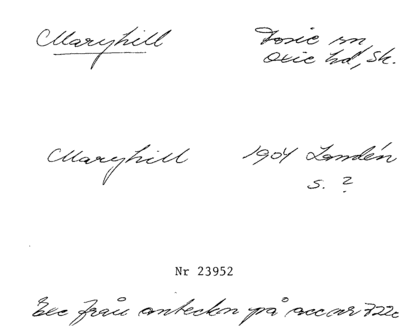 Maryhill Fosie sn
Oxie hd, Sk.
Maryhill 1904 Landén
s. ?
Nr 23952
Exc från anteckn på acc nr 722c